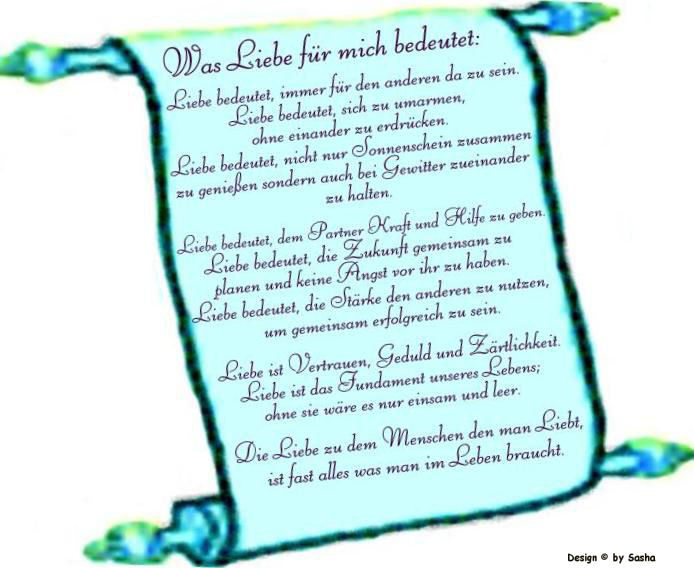 Was Liebe für mich bedeutet:
Liebe bedeutet, immer für den anderen da zu sein.
Liebe bedeutet, sich zu umarmen,
ohne einander zu erdrücken.
Liebe bedeutet, nicht nur Sonnenschein zusammen
zu genießen sondern auch bei Gewitter zueinander
zu halten.
Liebe bedeutet, dem Partner Kraft und Hilfe zu geben.
Liebe bedeutet, die Zukunft gemeinsam zu
planen und keine Angst vor ihr zu haben.
Liebe bedeutet, die Stärke den anderen zu nutzen,
um gemeinsam erfolgreich zu sein.
Liebe ist Vertrauen, Geduld und Zärtlichkeit.
Liebe ist das Fundament unseres Lebens;
ohne sie wäre es nur einsam und leer.
Die Liebe zu dem Menschen den man Liebt,
ist fast alles was man im Leben braucht.
Design © by Sasha